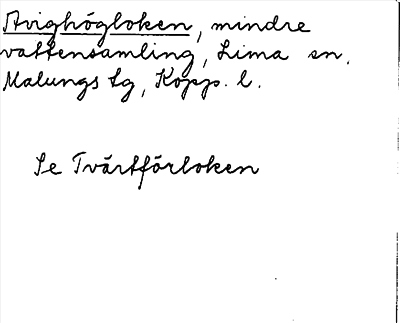 Avighögloken, mindre
vattensamling, Lima sn.
Malungs tg, Kopp. l.
Se Tvärtförloken